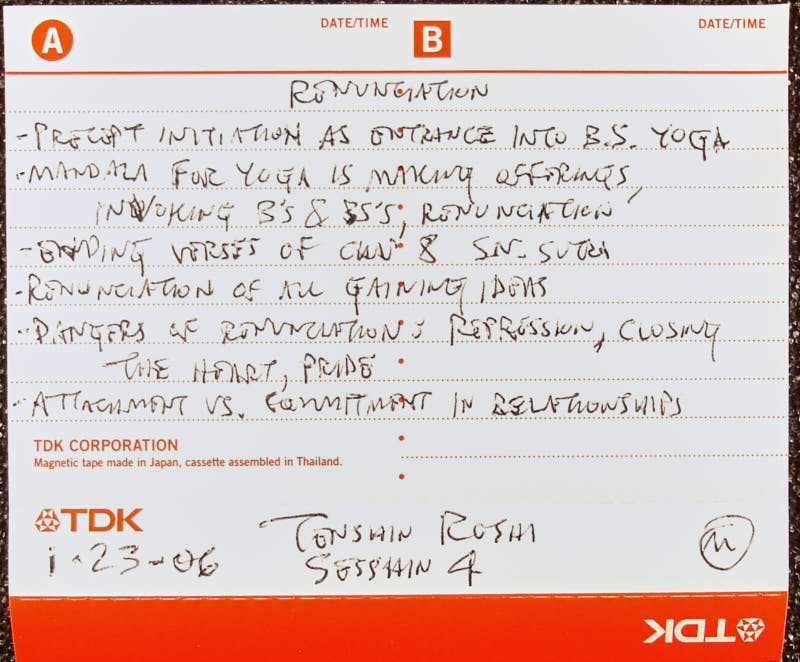 A DATE/TIME B DATE/TIME
RENUNCIATION
- PRECEPT INITIATION AS ENTRANCE INTO B.S. YOGA
- MANDALA FOR YOGA IS MAKING OFFERINGS,
INVOKING B'S & BS'S, RENUNCIATION
- ENDING VERSES OF CHAP 8 SN. SUTRA
- RENUNCIATION OF ALL GAINING IDEAS
- DANGERS OF RENUNCIATION: REPRESSION, CLOSING
THE HEART, PRIDE
- ATTACHMENT VS. COMMITMENT IN RELATIONSHIPS
TDK CORPORATION
Magnetic tape made in Japan, cassette assembled in Thailand.
TDK
TENSHIN ROSHI
1-23-06 SESSHIN 4
M
TDK